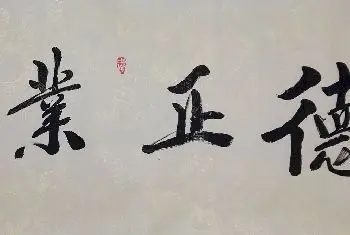 德正業